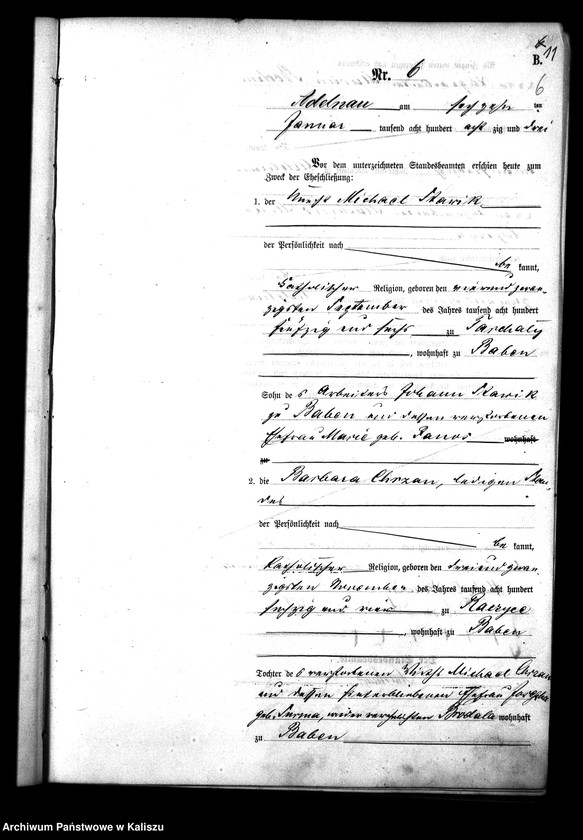 11
B.
6
Nr. 6
Adelnau am sechzehn ten
Januar tausend acht hundert acht zig und drei
Vor dem unterzeichneten Standesbeamten erschien heute zum
Zweck der Eheschließung:
1. der Knecht Michael Skarik
der Persönlichkeit nach
be kannt,
katholischer Religion, geboren den vierundzwan-
zigsten September des Jahres tausend acht hundert
fünfzig und sechs zu Tarchaly
, wohnhaft zu Baben
Sohn des Arbeiters Johann Skarik
zu Baben und dessen verstorbenen
Ehefrau Marie geb. Panos wohnhaft
zu
2. die Barbara Chrzan, ledigen Stan-
des
der Persönlichkeit nach
be kannt,
katholischer Religion, geboren den dreiundzwan-
zigsten November des Jahres tausend acht hundert
sechzig und vier zu
, wohnhaft zu Baben
Tochter des verstorbenen Wirth Michael Chrzan
und dessen hinterbliebenen Ehefrau
geb. wieder verehelichten Brodala wohnhaft
zu Baben
Archiwum Państwowe w Kaliszu